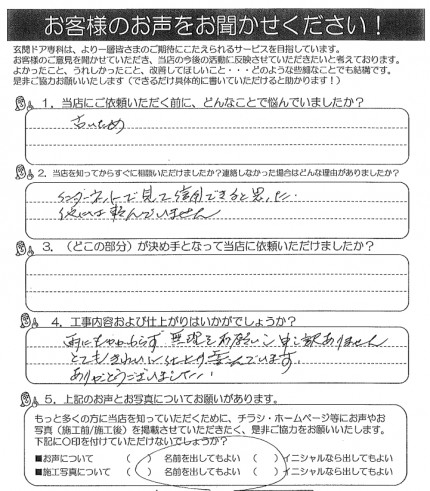 お客様のお声をお聞かせください！
玄関ドア専科は、より一層皆さまのご期待にこたえられるサービスを目指しています。
お客様のご意見を聞かせていただき、当店の今後の活動に反映させていただきたいと考えております。
よかったこと、うれしかったこと、改善してほしいこと・・・どのような些細なことでも結構です。
是非ご協力お願いいたします（できるだけ具体的に書いていただけると助かります！）
1．当店にご依頼いただく前に、どんなことで悩んでいましたか？
古いため
2．当店を知ってからすぐに相談いただけましたか？連絡しなかった場合はどんな理由がありましたか？
インターネットで見て信用できると思った.
他には頼んでいません
3．（どこの部分）が決め手となって当店に依頼いただけましたか？
4．工事内容および仕上がりはいかがでしょうか？
雨にもかかわらず 無理をお願いし申し訳ありません
とてもきれいに仕上り喜んでいます.
ありがとうございました.
5．上記のお声とお写真についてお願いがあります。
もっと多くの方に当店を知っていただくために、チラシ・ホームページ等にお声やお
写真（施工前/施工後）を掲載させていただきたく、是非ご協力をお願いいたします。
下記に○印を付けていただけないでしょうか？
■お声について （ ） 名前を出してもよい （ ）イニシャルなら出してもよい
■施工写真について （ ） 名前を出してもよい （ ）イニシャルなら出してもよい